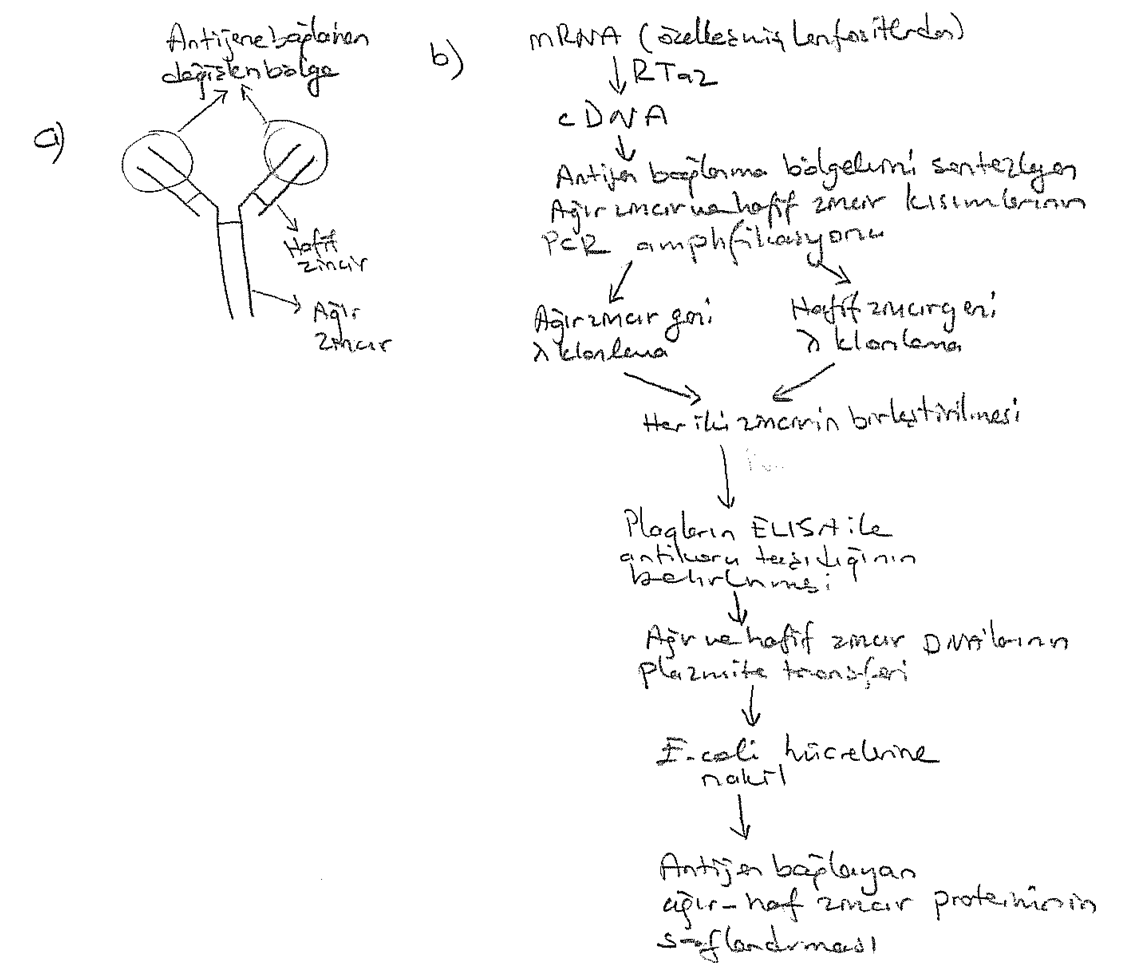 a)
Antijene bağlanan
değişken bölge
Hafif
zincir
Ağır
zincir
b)
mRNA (özelleşmiş lenfositlerden)
RTaz
cDNA
Antijen bağlanma bölgelerini sentezleyen
Ağır zincir ve hafif zincir kısımlarının
PCR amplifikasyonu
Ağır zincir geni
λ klonlama
Hafif zincir geni
λ klonlama
Her iki zincirin birleştirilmesi
Plagların ELISA ile
antikoru taşıdığının
belirlenmesi
Ağır ve hafif zincir DNA'larının
plazmite transferi
E.coli hücrelerine
nakil
Antijen bağlayan
ağır-haf zincir proteininin
saflandırması